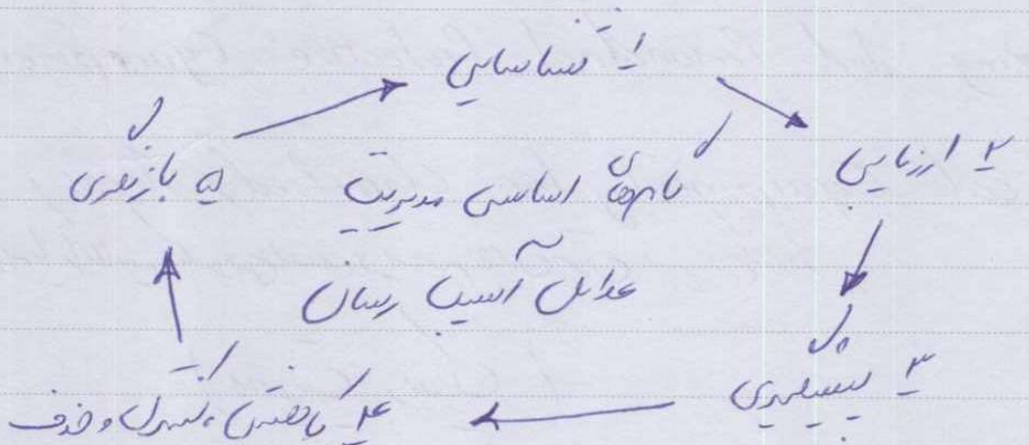 ۱ شناسایی
۲ ارزیابی
۳ پیشگیری
۴ کاهش، کنترل و حذف
۵ بازنگری
گامهای اساسی مدیریت
عوامل آسیب رسان